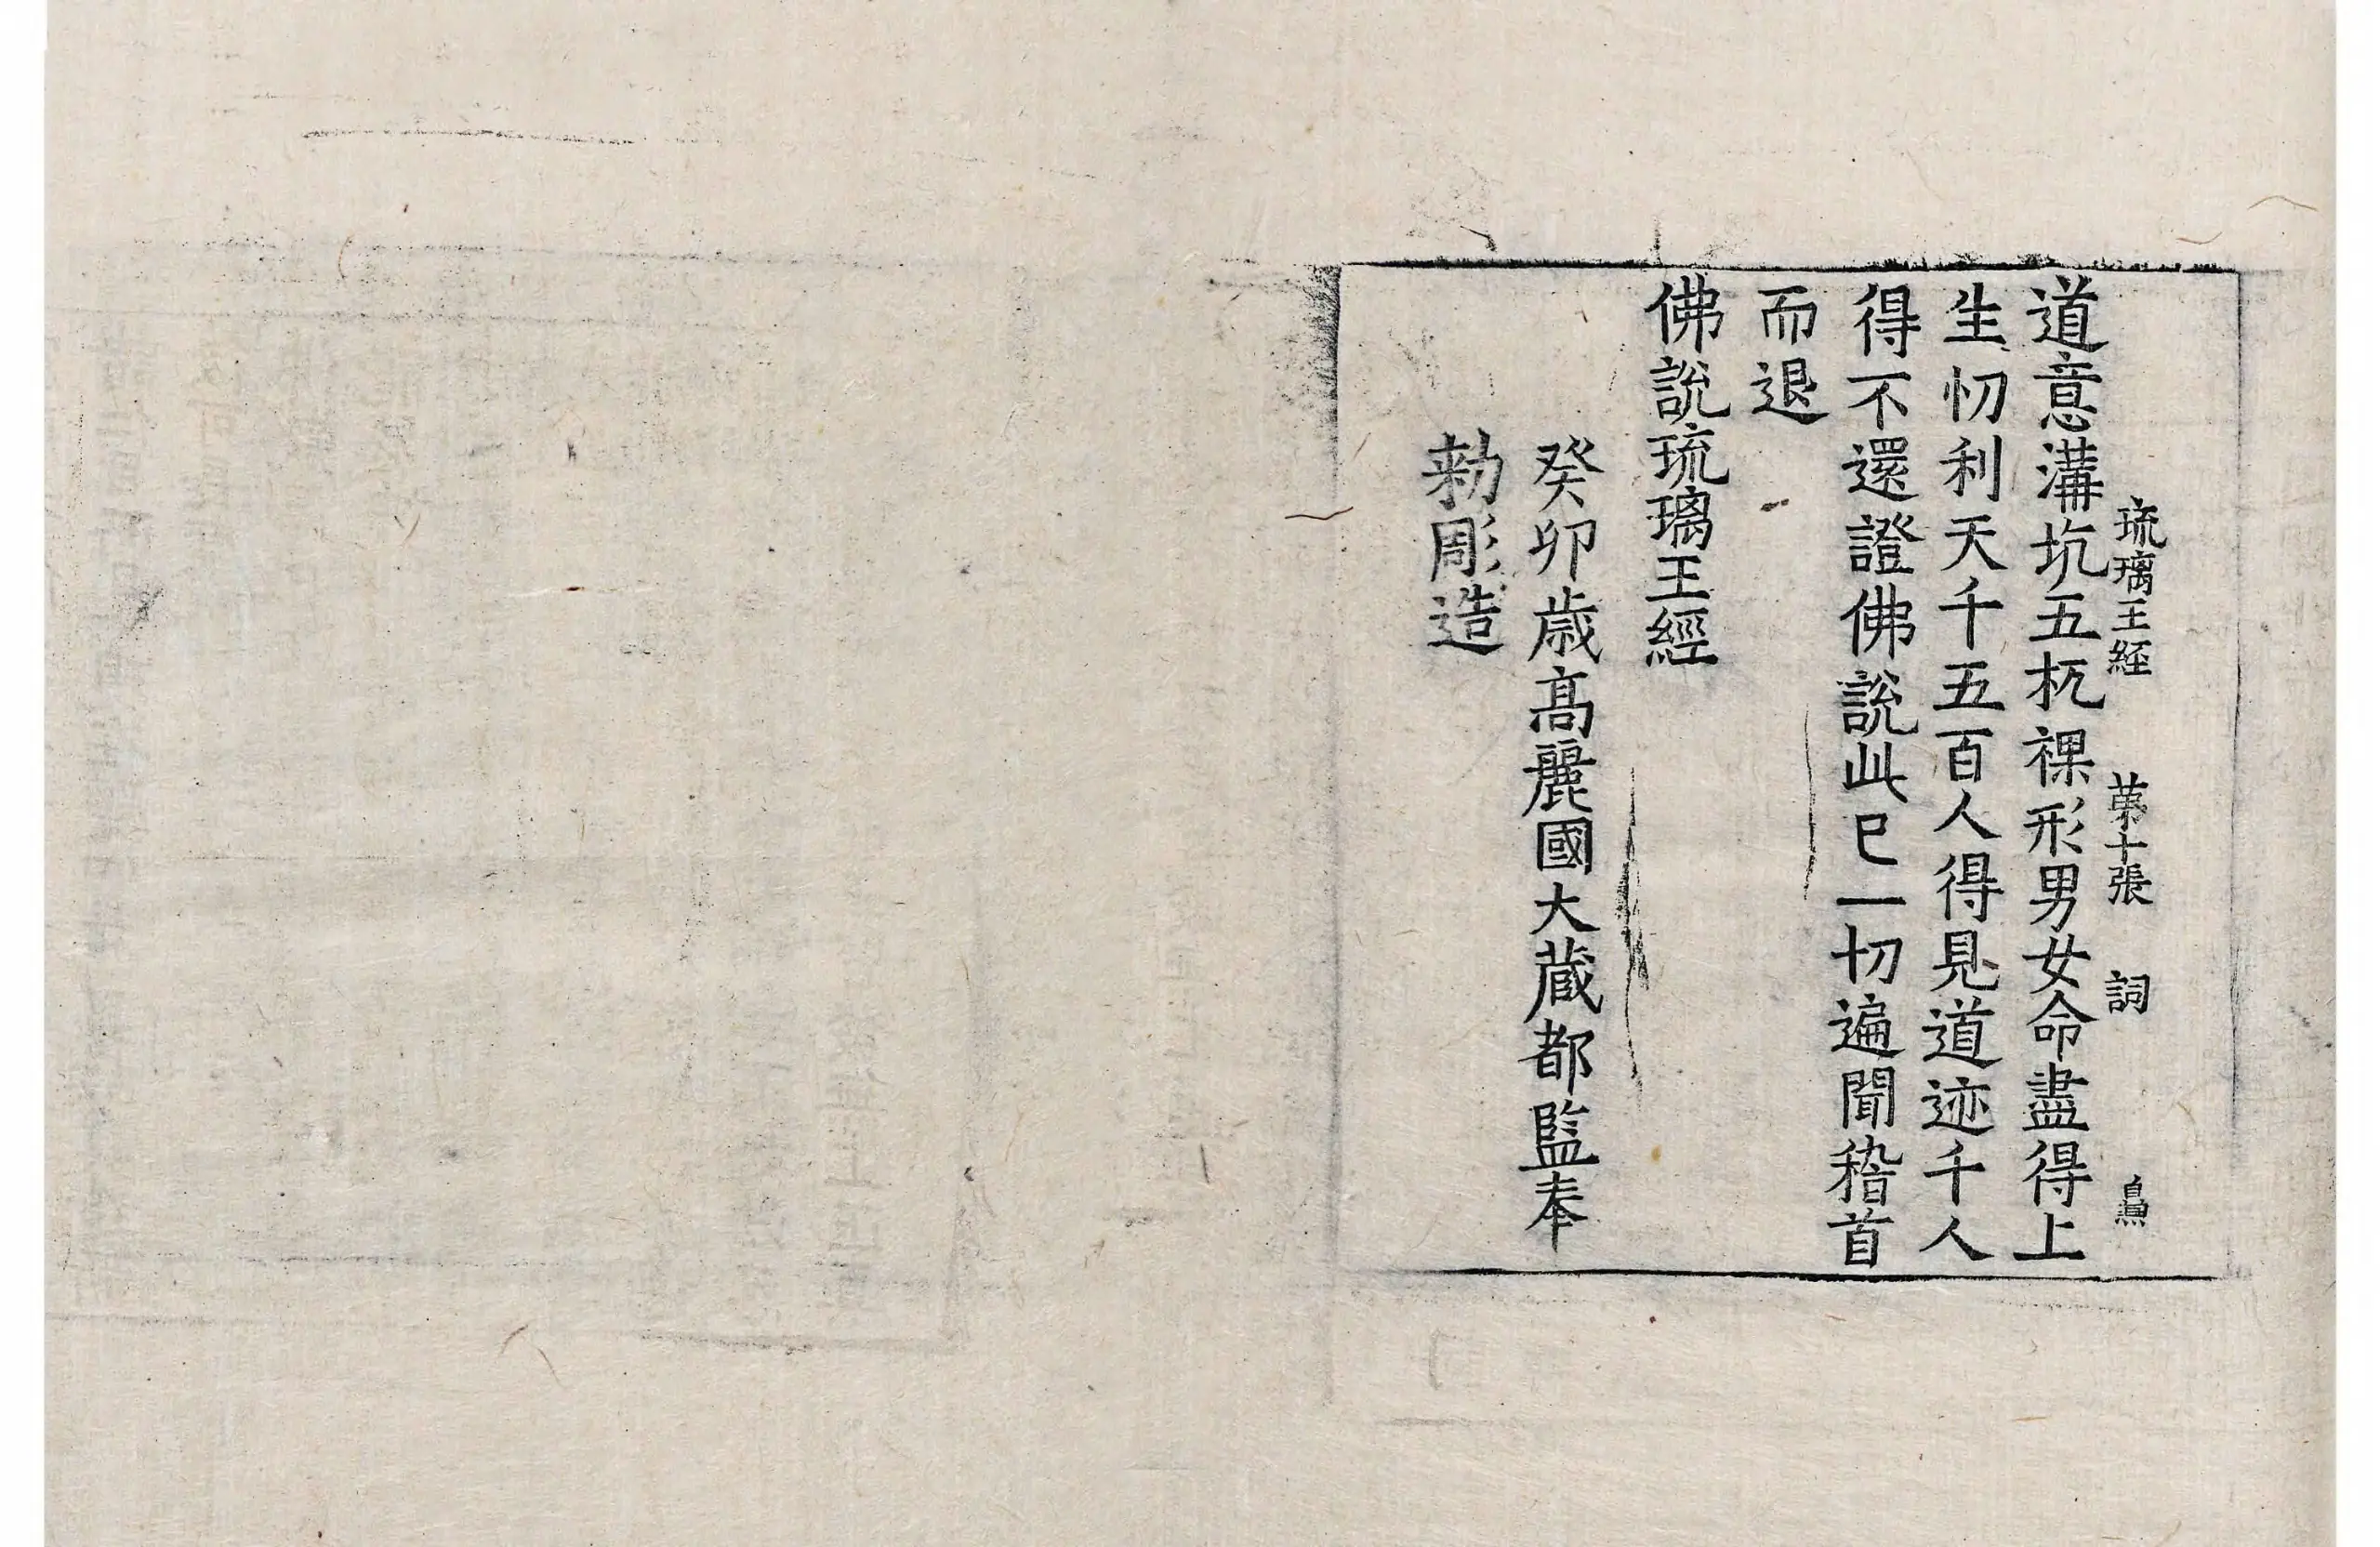 琉璃王經 第十張 詞
道意溝坑五杌裸形男女命盡得上
生忉利天千五百人得見道迹千人
得不還證佛說此已一切遍聞稽首
而退
佛說琉璃王經
癸卯歲高麗國大藏都監奉
勅彫造